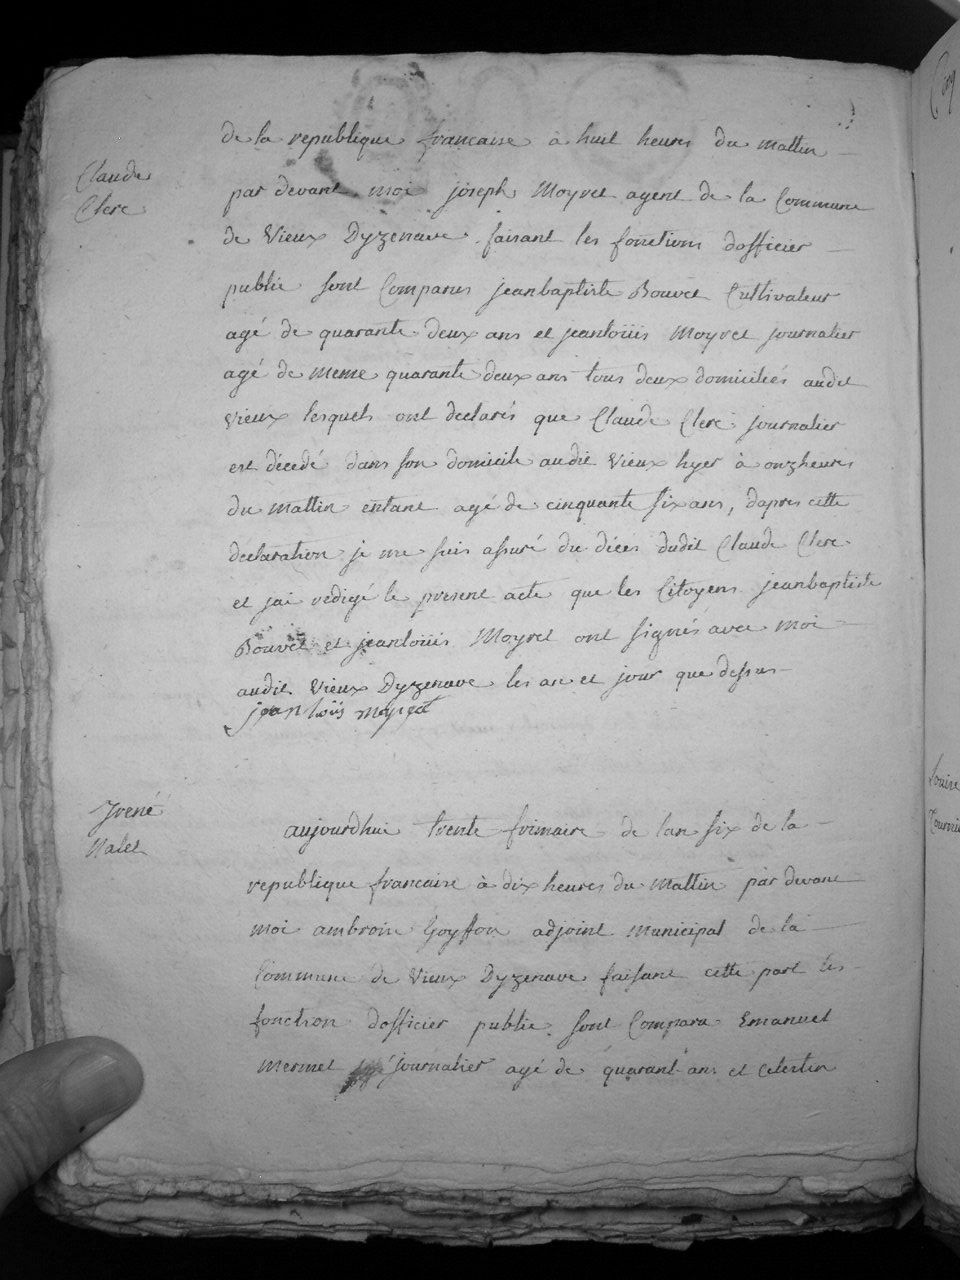 de la republique francaise à huit heures du mattin
Claude
Clerc
par devant moi joseph Moyret agent de la Commune
de Vieux Dyzenave faisant les fonctions dofficier
public sont Comparus jeanbaptiste Bouvet Cultivateur
agé de quarante deux ans et jeanloüis Moyret journalier
agé de meme quarante deux ans tous deux domiciliés audit
Vieux lesquels ont declarés que Claude Clerc journalier
est décédé dans son domicile audit Vieux hyer à onzheures
du mattin entant agé de cinquante six ans, dapres cette
declaration je me suis assuré du déces dudit Claude Clerc
et jai redigé le present acte que les Citoyens jeanbaptiste
Bouvet et jeanloüis Moyret ont signés avec moi
audit Vieux Dyzenave les an et jour que dessus
jean loüis moyret
Irené
Nalet
aujourdhui trente frimaire de lan six de la
republique francaise à dix heures du mattin par devant
moi ambrois Goyffon adjoint municipal de la
Commune de Vieux Dyzenave faisant cette part les
fonction dofficier public sont Compara Emanuel
Mermet journalier agé de quarant ans et Celestin
Louise